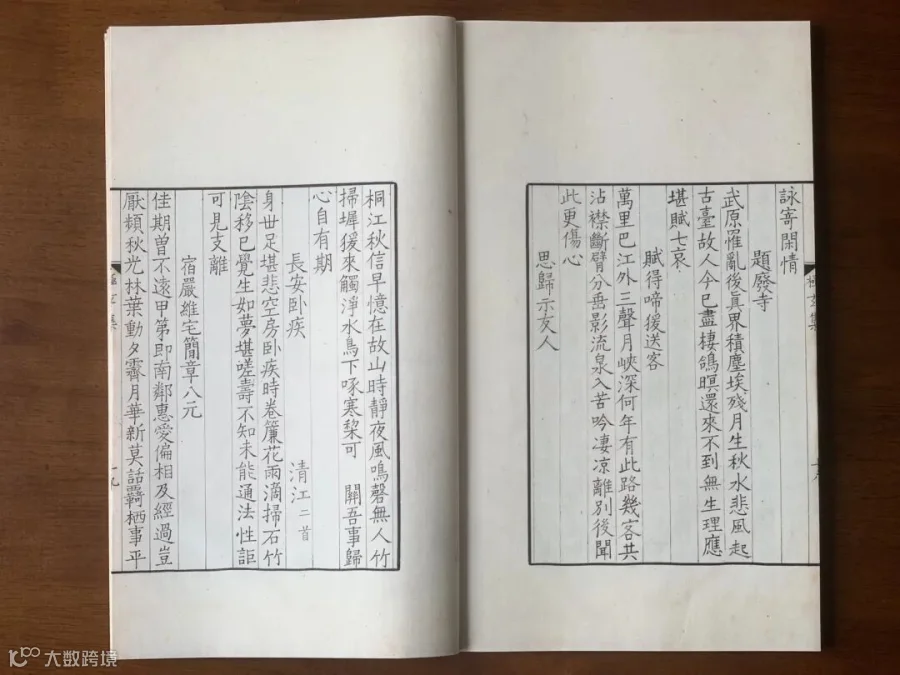 詠寄閑情
題廢寺
武原罹亂後眞界積塵埃殘月生秋水悲風起
古臺故人今已盡棲鴿暝還來不到無生理應
堪賦七哀
賦得啼猨送客
萬里巴江外三聲月峽深何年有此路幾客共
沾襟斷臂分垂影流泉入苦吟凄凉離別後聞
此更傷心
思歸示友人
桐江秋信早憶在故山時靜夜風鳴磬無人竹
掃墀猨來觸淨水鳥下啄寒棃可 關吾事歸
心自有期
長安卧疾 清江二首
身世足堪悲空房卧疾時卷簾花雨滴掃石竹
陰移已覺生如夢堪嗟壽不知未能通法性詎
可見支離
宿嚴維宅簡章八元
佳期曽不遠甲第即南鄰惠愛偏相及經過豈
厭頻秋光林葉動夕霽月華新莫話羇栖事平
十九
大数跨境